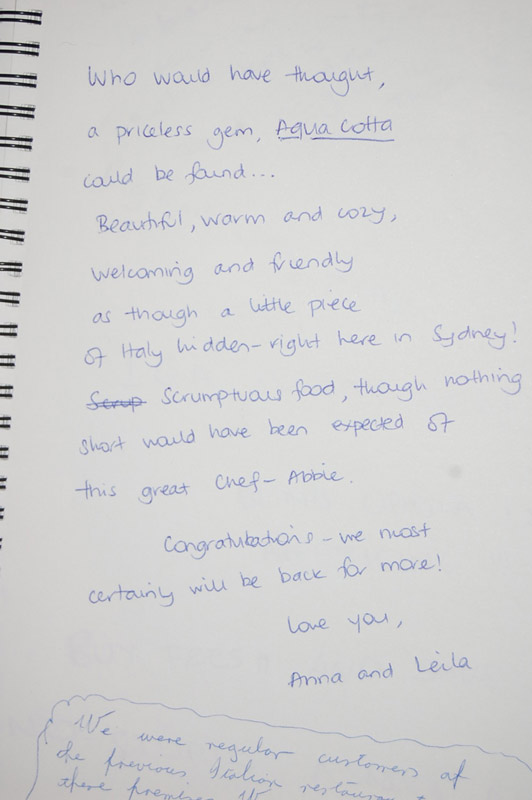 Who would have thought,
a priceless gem, Aqua Cotta
could be found...
Beautiful, warm and cozy,
welcoming and friendly
as though a little piece
of Italy hidden-right here in Sydney!
Scrup Scrumptuous food, though nothing
short would have been expected of
this great Chef- Abbie.
Congratulations - we most
certainly will be back for more!
Love you,
Anna and Leila
We were regular customers of
the previous Italian restaurant
these premises. We